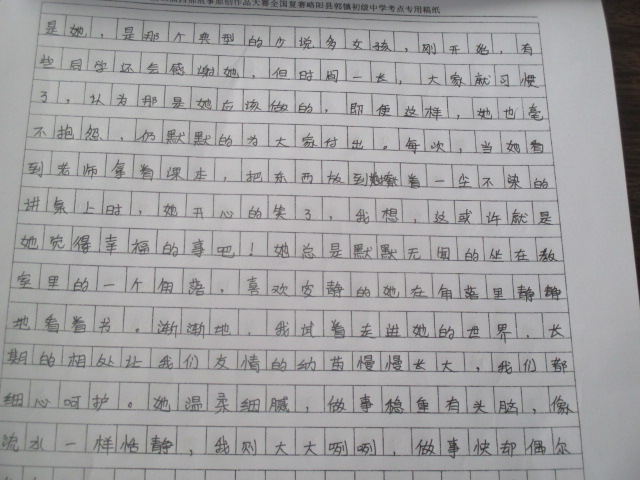 原创作品大赛全国复赛略阳县郭镇初级中学考点专用稿纸
是她，是那个典型的少说多女孩，刚开始，有
些同学还会感谢她，但时间一长，大家就习惯
了，认为那是她应该做的，即使这样，她也毫
不抱怨，仍默默的为大家付出。每次，当她看
到老师拿着课本，把东西放到散着一尘不染的
讲桌上时，她开心的笑了，我想，这或许就是
她觉得幸福的事吧！她总是默默无闻的坐在教
室里的一个角落，喜欢安静的她在角落里静静
地看着书。渐渐地，我试着走进她的世界，长
期的相处让我们友情的幼苗慢慢长大，我们都
细心呵护。她温柔细腻，做事稳重有头脑，像
流水一样恬静，我则大大咧咧，做事快却偶尔